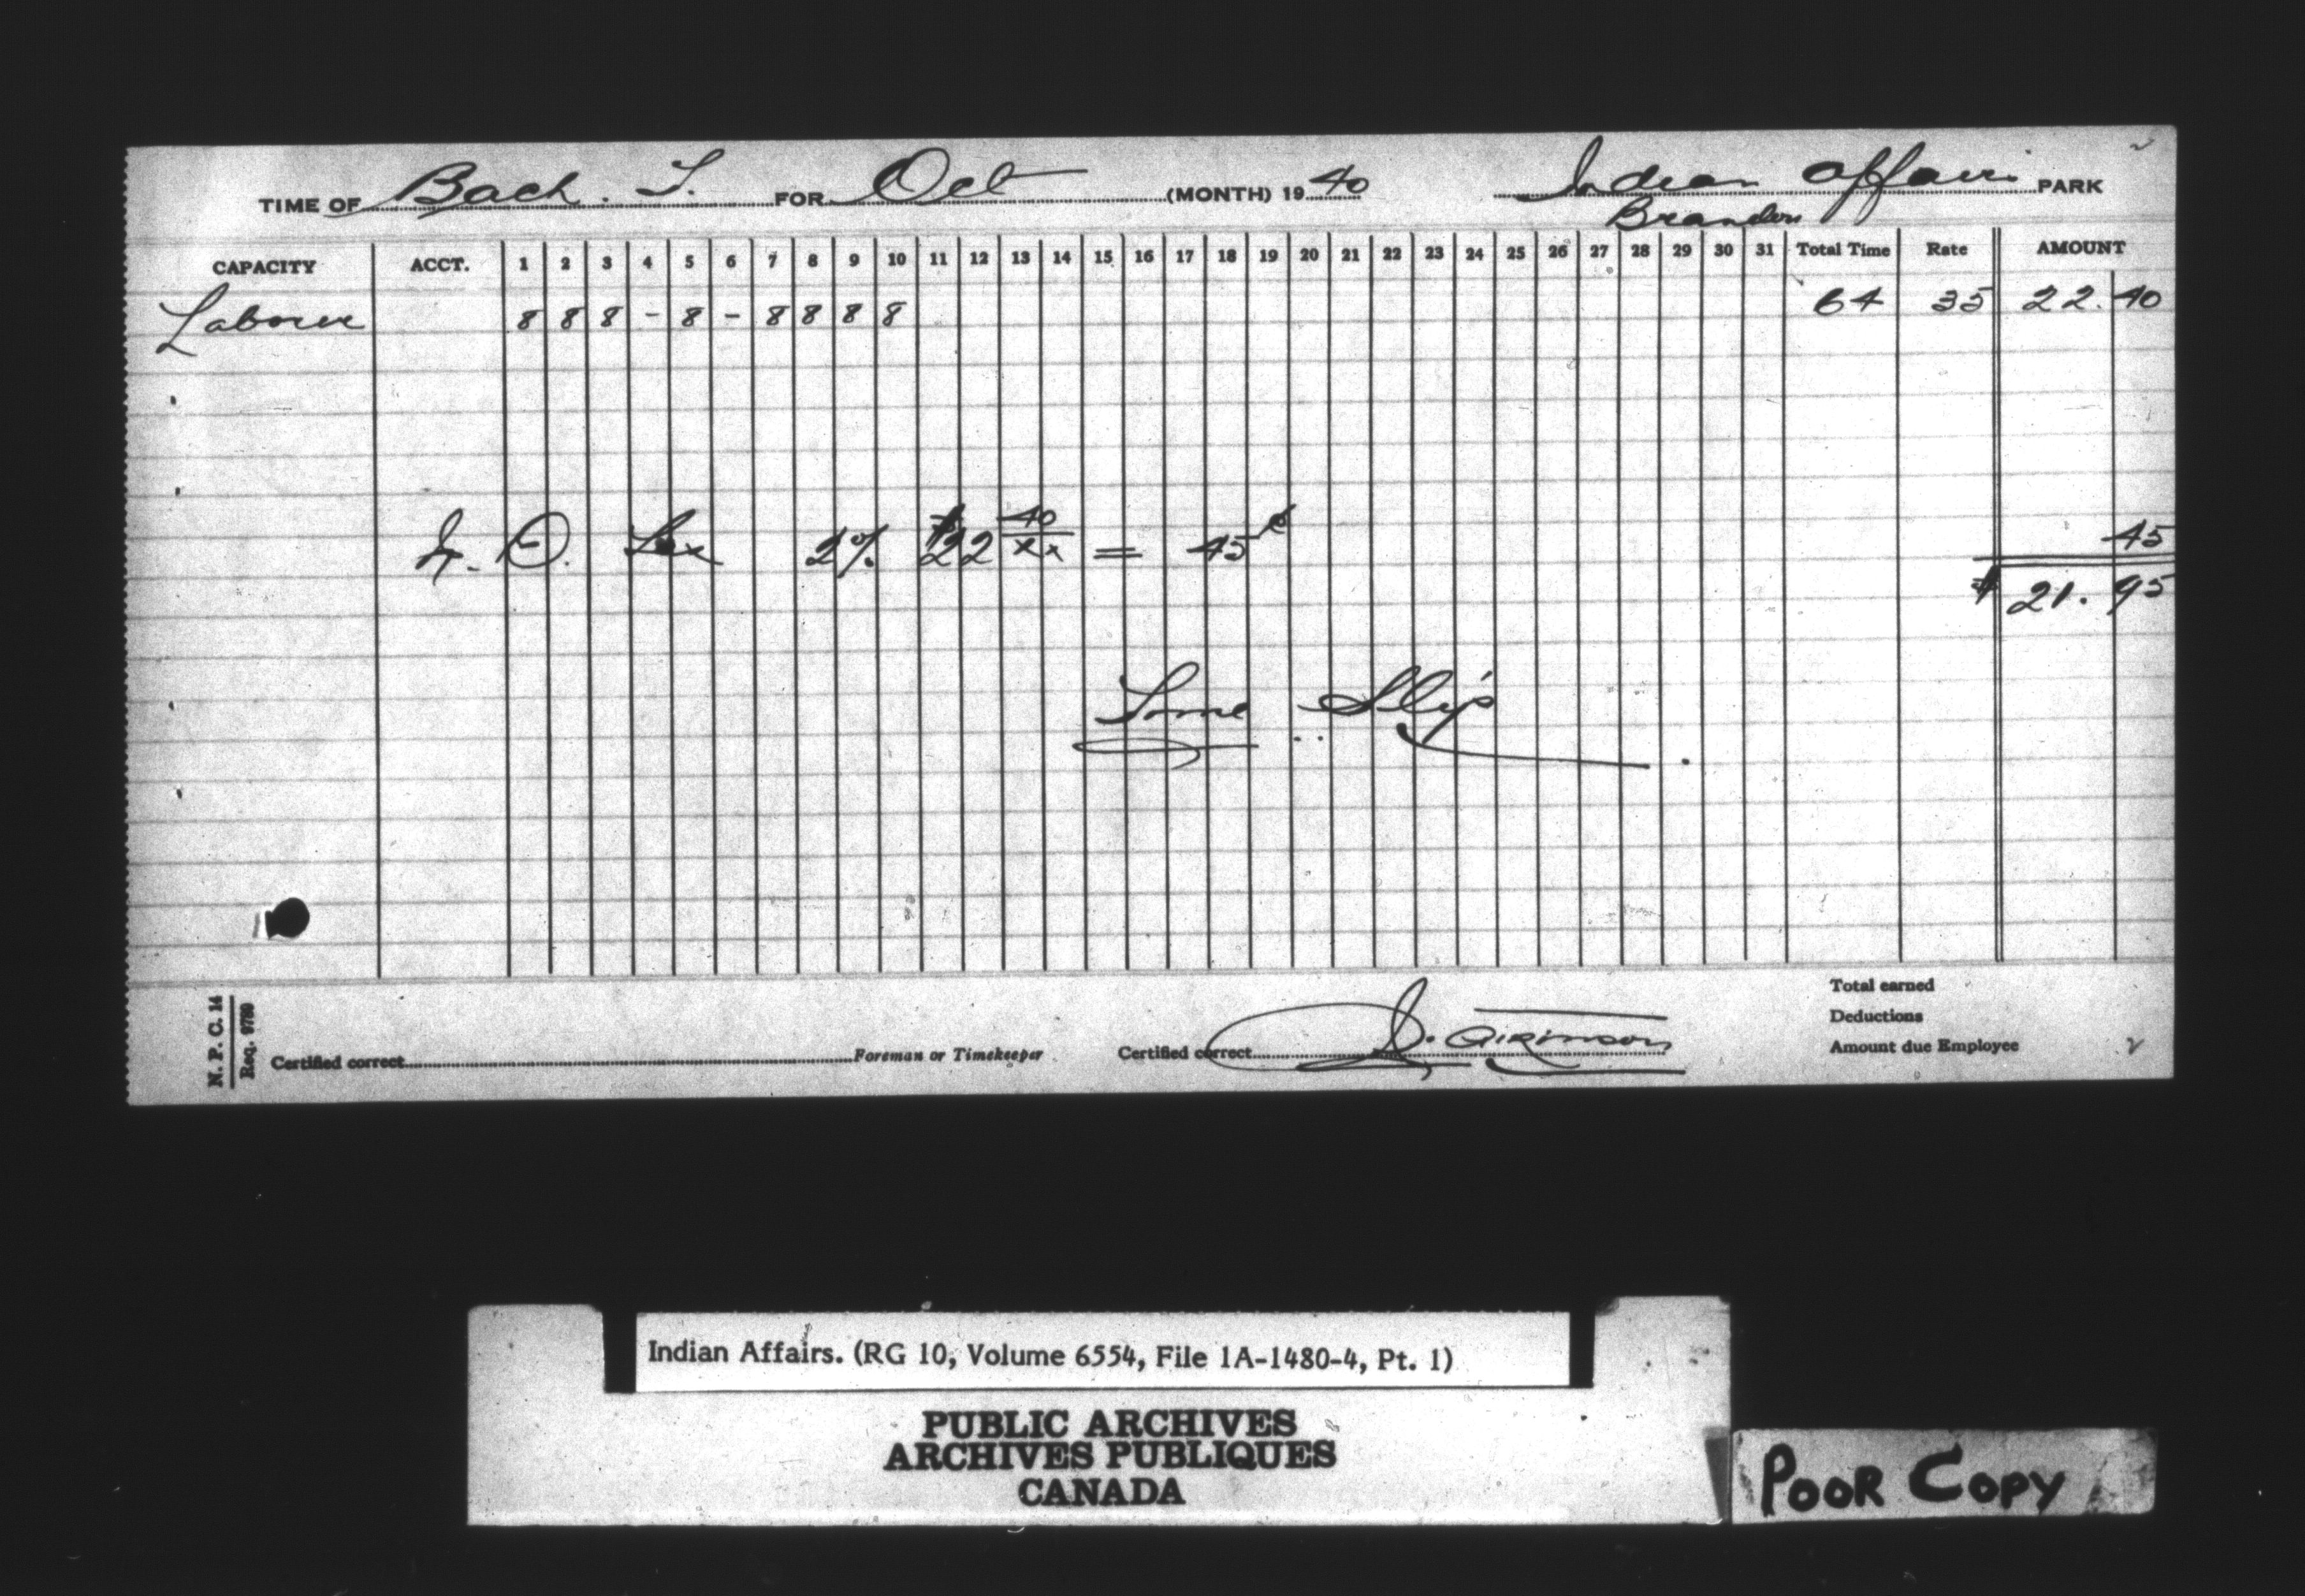 TIME OF Bach. T. FOR Oct (MONTH) 1940 Indian Affairs PARK
Brandon
CAPACITY ACCT. 1 2 3 4 5 6 7 8 9 10 11 12 13 14 15 16 17 18 19 20 21 22 23 24 25 26 27 28 29 30 31 Total Time Rate AMOUNT
Laborer 8 8 8 - 8 - 8 8 8 8 64 35 22.40
N. D. Tax 2% $22 40/xx = 45¢ 45
$ 21.95
Time Slip
Total earned
Deductions
Certified correct Foreman or Timekeeper Certified correct Amount due Employee
N. P. C. 14
Req. 9769
Indian Affairs. (RG 10, Volume 6554, File 1A-1480-4, Pt. 1)
PUBLIC ARCHIVES
ARCHIVES PUBLIQUES
CANADA
POOR COPY